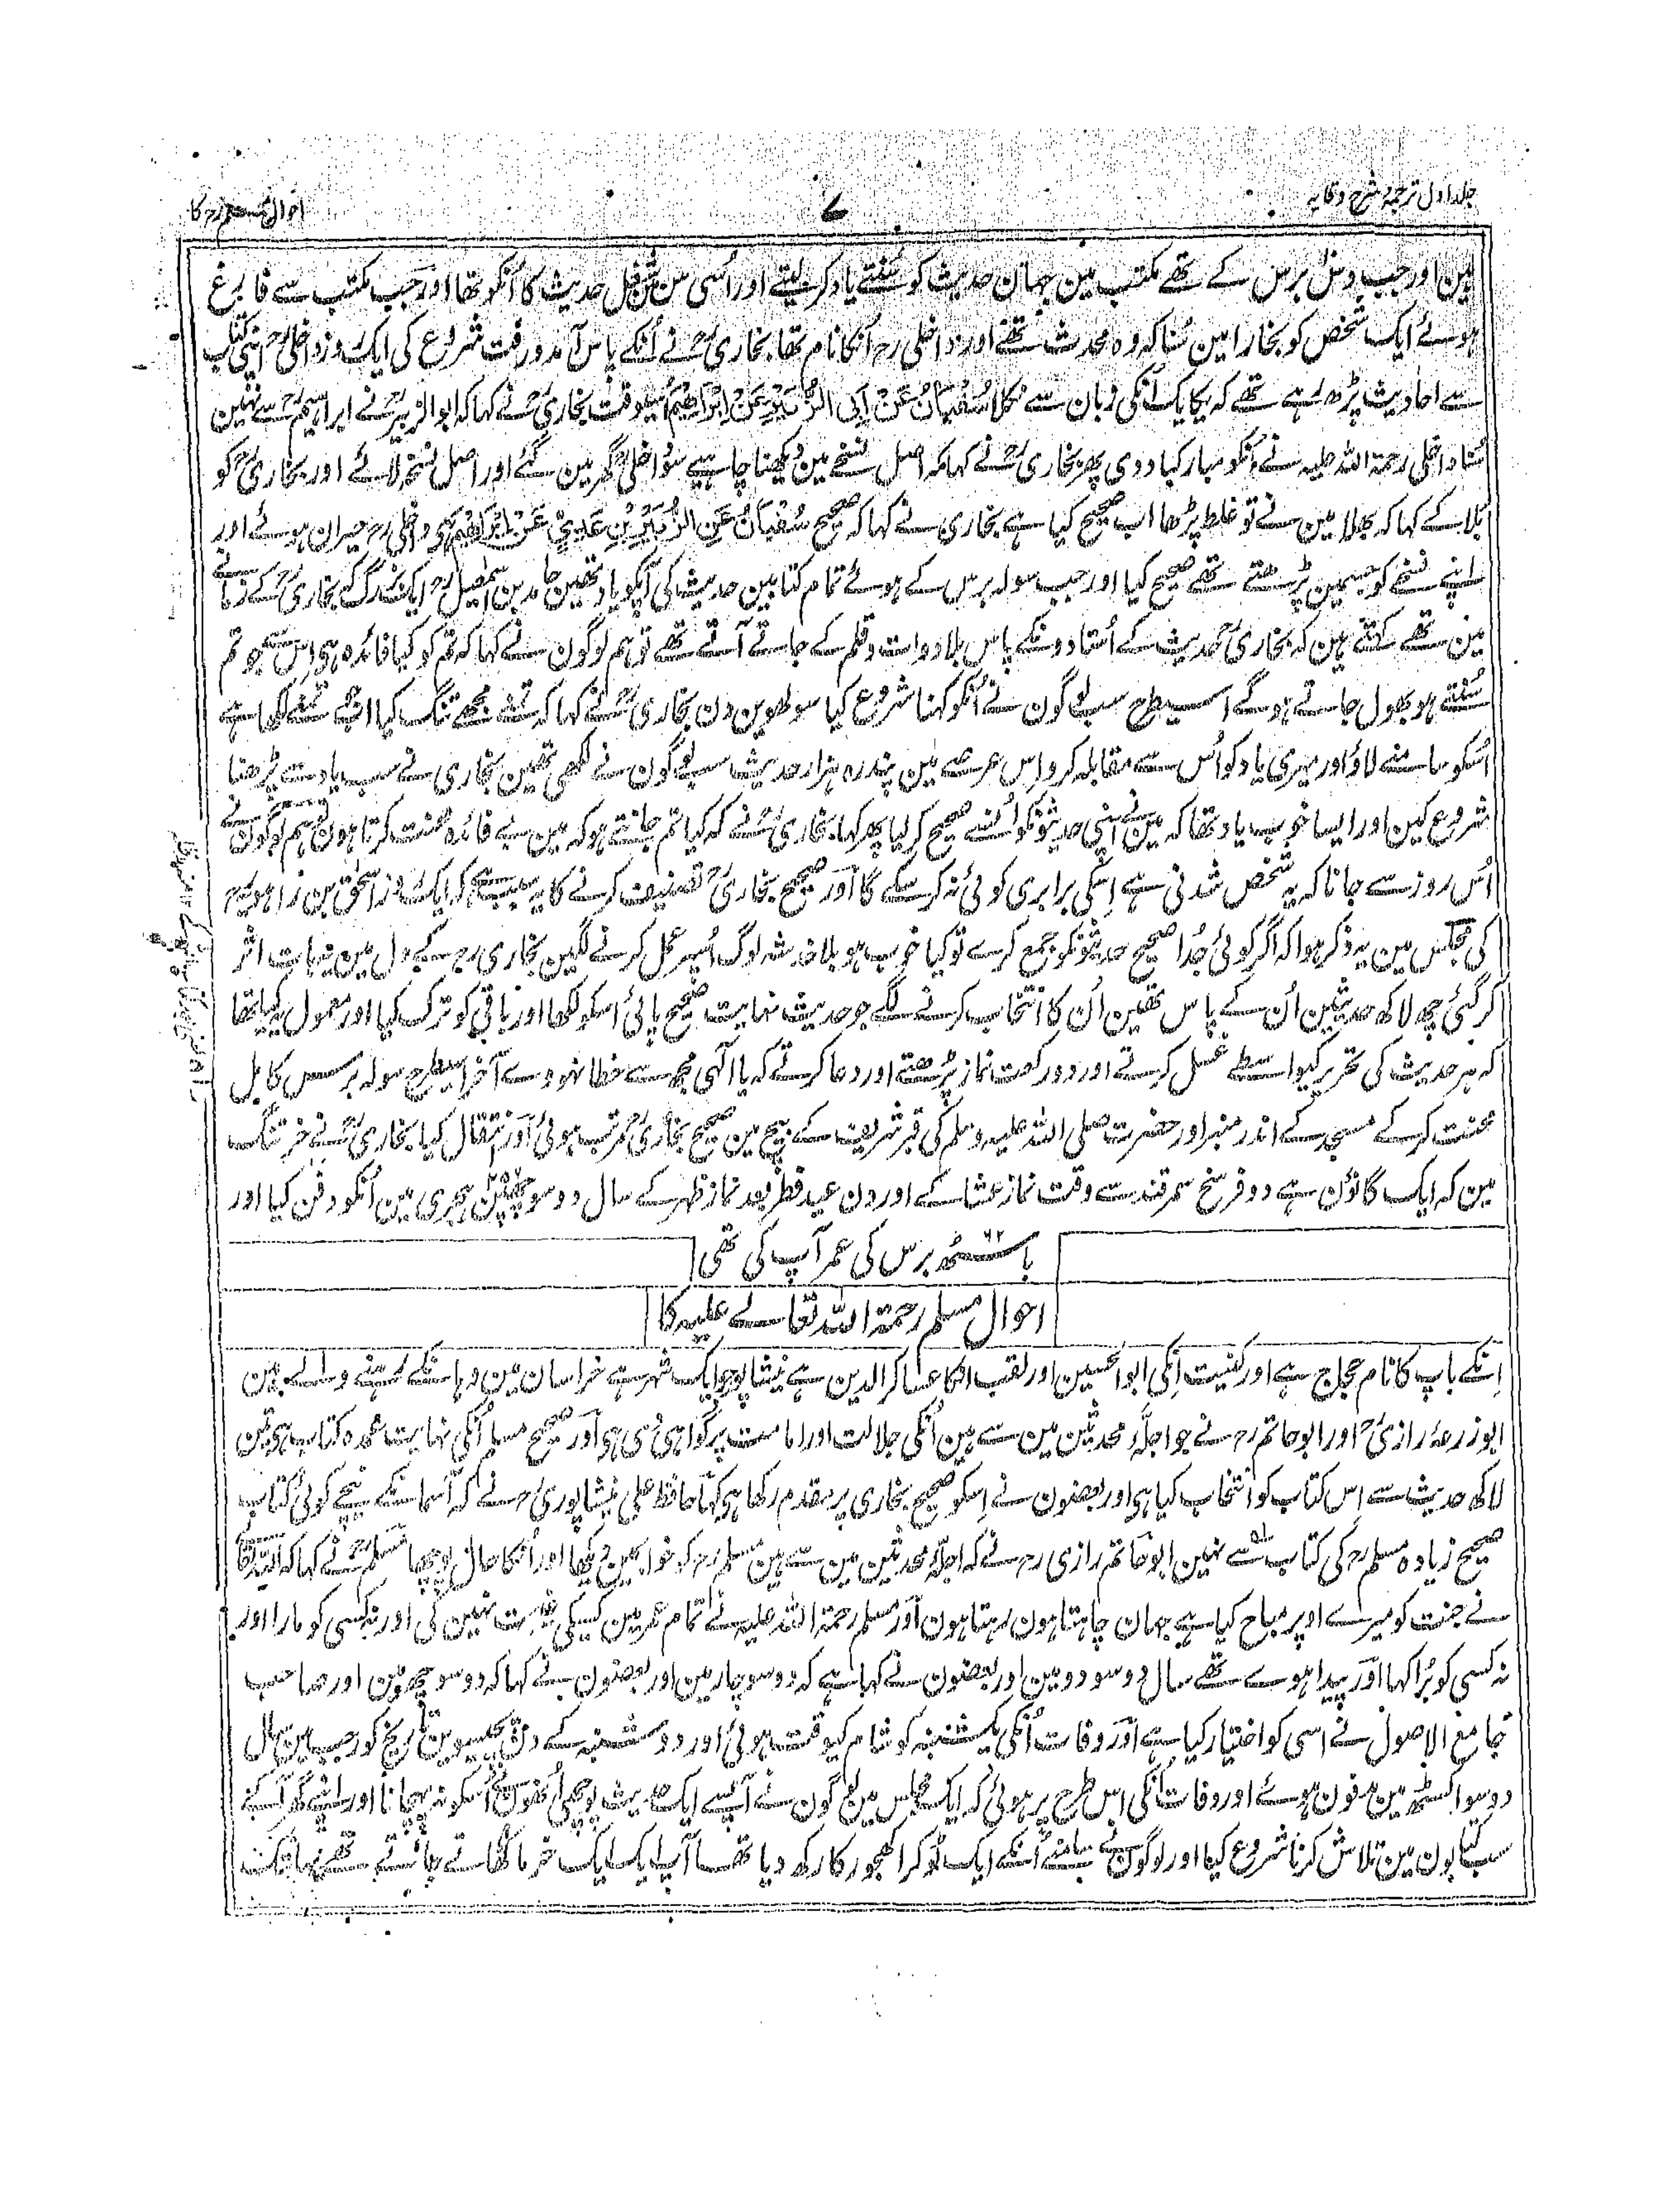 جلد اول ترجمۂ شرح وقایہ
۷
احوال مسلم رح کا
ہین اور جب دس برس کے تھے مکتب مین جہان حدیث کو سُنتے یاد کر لیتے اور اُسی سن شغل حدیث کا اُنکو تھا اور جب مکتب سے فارغ
ہوئے ایک شخص کو بخارا مین سُنا کہ وہ محدث تھے اور داخلی رح اُنکا نام تھا بخاری رح نے اُنکے پاس آمد و رفت شروع کی ایک روز داخلی رح اپنی کتاب
سے احادیث پڑھ رہے تھے کہ یکایک اُنکی زبان سے نکلا سُفْیَانُ عَنْ اَبِی الزُّبَیْرِ عَنْ اِبْرَاهِیْمَ اُسیوقت بخاری رح نے کہا کہ ابو الزبیر رح نے ابراہیم رح سے نہین
سُنا داخلی رحمۃ اللہ علیہ نے اُنکو مبارکبا دی پھر بخاری رح نے کہا کہ اصل نسخے مین دیکھنا چاہیے سو داخلی رح گھر مین گئے اور اصل نسخہ لائے اور بخاری رح کو
بلا کے کہا کہ بھلا مین نے تو غلط پڑھا اب صحیح کیا ہے بخاری نے کہا کہ صحیح سُفْیَانُ عَنِ الزُّبَیْرِ بْنِ عَدِیٍّ عَنْ اِبْرَاهِیْمَ ہی داخلی رح حیران ہوئے اور
اپنے نسخے کو جسمین پڑھتے تھے صحیح کیا اور جب سولہ برس کے ہوئے تمام کتابین حدیث کی آپکو یاد تھین حامد بن اسمٰعیل رح ایک بزرگ کہ بخاری رح کے زمانے
مین تھے کہتے ہین کہ بخاری رح حدیث کے اُستادونکے پاس بلا دوات و قلم کے جاتے آتے تھے تو ہم لوگون نے کہا کہ تم کو کیا فائدہ ہی اس سے جو تم
سُنتے ہو بھول جاتے ہوگے اسیطرح سب لوگون نے اُنکو کہنا شروع کیا سولھوین دن بخاری رح نے کہا کہ تمنے مجھے تنگ کیا اب جو تمنے لکھا ہے
اُسکو سامنے لاؤ اور میری یاد کو اُس سے مقابلہ کرو اس عرصے مین پندرہ ہزار حدیث سب لوگون نے لکھی تھین بخاری نے سب یاد سے پڑھنا
شروع کین اور ایسا خوب یاد تھا کہ مین نے اپنی حدیثونکو اُنسے صحیح کر لیا پھر کہا بخاری رح نے کہ کیا تم جانتے ہو کہ مین بے فائدہ محنت کرتا ہون تو ہم لوگون نے
اُس روز سے جانا کہ یہ شخص شدنی ہے اِسکی برابری کوئی نہ کر سکے گا اور صحیح بخاری رح تصنیف کرنے کا یہ سبب ہے کہ ایک روز اسحٰق بن راہویہ رح
کی مجلس مین یہ ذکر ہوا کہ اگر کوئی جُدا صحیح حدیثونکو جمع کرے تو کیا خوب ہو بلا خدشہ لوگ اُسپر عمل کرنے لگین بخاری رح کے دل مین یہ بات اثر
کر گئی چھ لاکھ حدیثین اُن کے پاس تھین اُن کا انتخاب کرنے لگے جو حدیث نہایت صحیح پائی اُسکو لکھا اور باقی کو ترک کیا اور معمول یہ کیا تھا
کہ ہر حدیث کی تحریر کیواسطے غسل کرتے اور دو رکعت نماز پڑھتے اور دعا کرتے کہ یا الٰہی مجھ سے خطا نہووے آخر اسیطرح سولہ برس کامل
محنت کر کے مسجد کے اندر منبر اور حضرت صلی اللہ علیہ وسلم کی قبر شریف کے بیچ مین صحیح بخاری رح مرتب ہوئی اور انتقال کیا بخاری رح نے خرتنگ
مین کہ ایک گانوُن ہے دو فرسخ سمرقند سے وقت نماز عشا کے اور دن عید فطر بعد نماز ظہر کے سال دو سو چھپن ہجری مین اُنکو دفن کیا اور
باسٹھ ۶۲ برس کی عمر آپ کی تھی
احوال مسلم رحمۃ اللہ تعالے علیہ کا
اِنکے باپ کا نام حجاج ہے اور کنیت اِنکی ابو الحسین اور لقب انکا عساکر الدین ہے نیشاپور جو ایک شہر ہے خراسان مین وہانکے رہنے والے ہین
ابو زرعہ رازی رح اور ابو حاتم رح نے جو اجلّۂ محدثین مین سے ہین اُنکی جلالت اور امامت پر گواہی دی ہی اور صحیح مسلم اُنکی نہایت عمدہ کتاب ہی تین
لاکھ حدیث سے اس کتاب کو انتخاب کیا ہی اور بعضون نے اِسکو صحیح بخاری پر مقدم رکھا ہی کہا حافظ علی نیشاپوری رح نے کہ آسمانکے نیچے کوئی کتاب
صحیح زیادہ مسلم رح کی کتاب سے نہین ابو حاتم رازی رح نے کہ اجلّۂ محدثین مین سے ہین مسلم رح کو خواب مین دیکھا اور اُنکا حال پوچھا مسلم رح نے کہا کہ اللہ تعالیٰ
نے جنت کو میرے اوپر مباح کیا ہے جہان چاہتا ہون رہتا ہون اور مسلم رحمۃ اللہ علیہ نے تمام عمر مین کسیکی غیبت نہین کی اور نہ کسی کو مارا اور
نہ کسی کو بُرا کہا اور پیدا ہوے تھے سال دو سو دو مین اور بعضون نے کہا ہے کہ دو سو چار مین اور بعضون نے کہا کہ دو سو چھ مین اور صاحب
جامع الاصول نے اسی کو اختیار کیا ہے اور وفات اُنکی یکشنبہ کو شام کیوقت ہوئی اور دوشنبہ کے دن پچیسوین تاریخ کو رجب مین سال
دو سو اکسٹھ مین مدفون ہوئے اور وفات اُنکی اس طرح پر ہوئی کہ ایک مجلس مین لوگون نے آپسے ایک حدیث پوچھی اُنھون نے اُسکو نہ پہچانا اور اپنے گھر آکے
سب کتابون مین تلاش کرنا شروع کیا اور لوگون نے سامنے اُنکے ایک ٹوکرا کھجور کا رکھ دیا تھا آپ ایک ایک خرما کھاتے جاتے تھے یہانتک